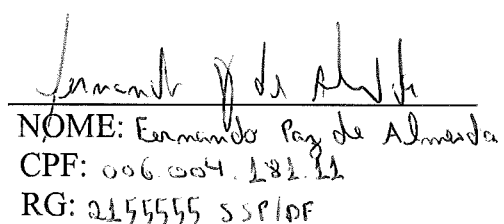 Fernando P de Almeida
NOME: Fernando Paz de Almeida
CPF: 006.004.181.11
RG: 2155555 SSP/DF